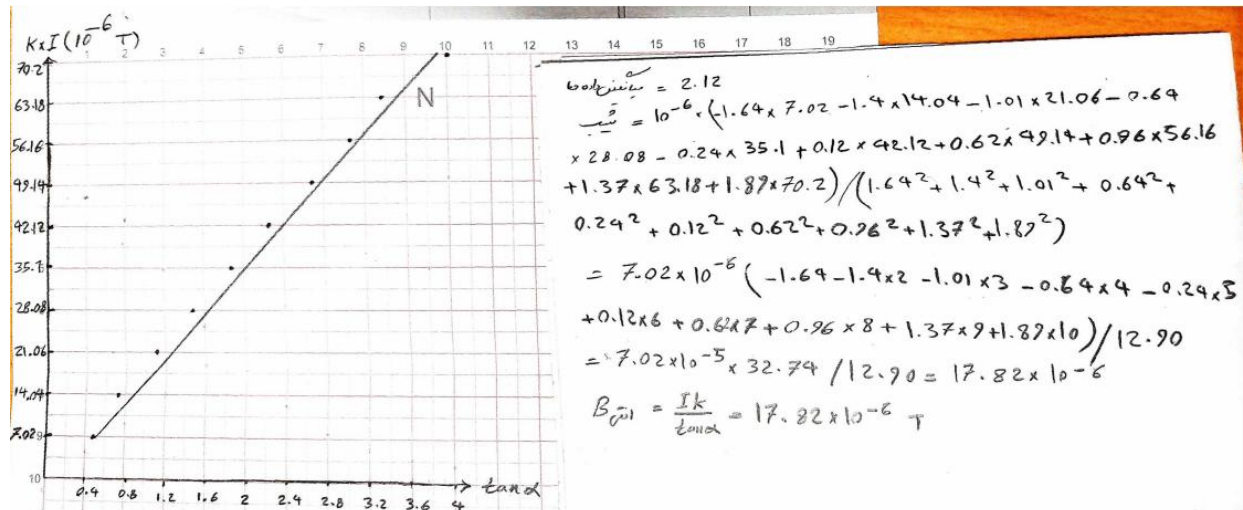 K×I (10⁻⁶ T)
1 2 3 4 5 6 7 8 9 10 11 12 13 14 15 16 17 18 19
70.2
63.18
56.16
49.14
42.12
35.1
28.08
21.06
14.04
7.02 9
10
N
0.4 0.8 1.2 1.6 2 2.4 2.8 3.2 3.6 4
tanα
= 2.12
شیب = 10⁻⁶ × (-1.64 × 7.02 - 1.4 × 14.04 - 1.01 × 21.06 - 0.64
× 28.08 - 0.24 × 35.1 + 0.12 × 42.12 + 0.62 × 49.14 + 0.96 × 56.16
+ 1.37 × 63.18 + 1.89 × 70.2) / (1.64² + 1.4² + 1.01² + 0.64² +
0.24² + 0.12² + 0.62² + 0.96² + 1.37² + 1.89²)
= 7.02 × 10⁻⁶ (-1.64 - 1.4×2 - 1.01 × 3 - 0.64 × 4 - 0.24 × 5
+ 0.12×6 + 0.62×7 + 0.96 × 8 + 1.37 × 9 + 1.89×10) / 12.90
= 7.02×10⁻⁵ × 32.74 / 12.90 = 17.82 × 10⁻⁶
B = Ik / tanα = 17.82 × 10⁻⁶ T